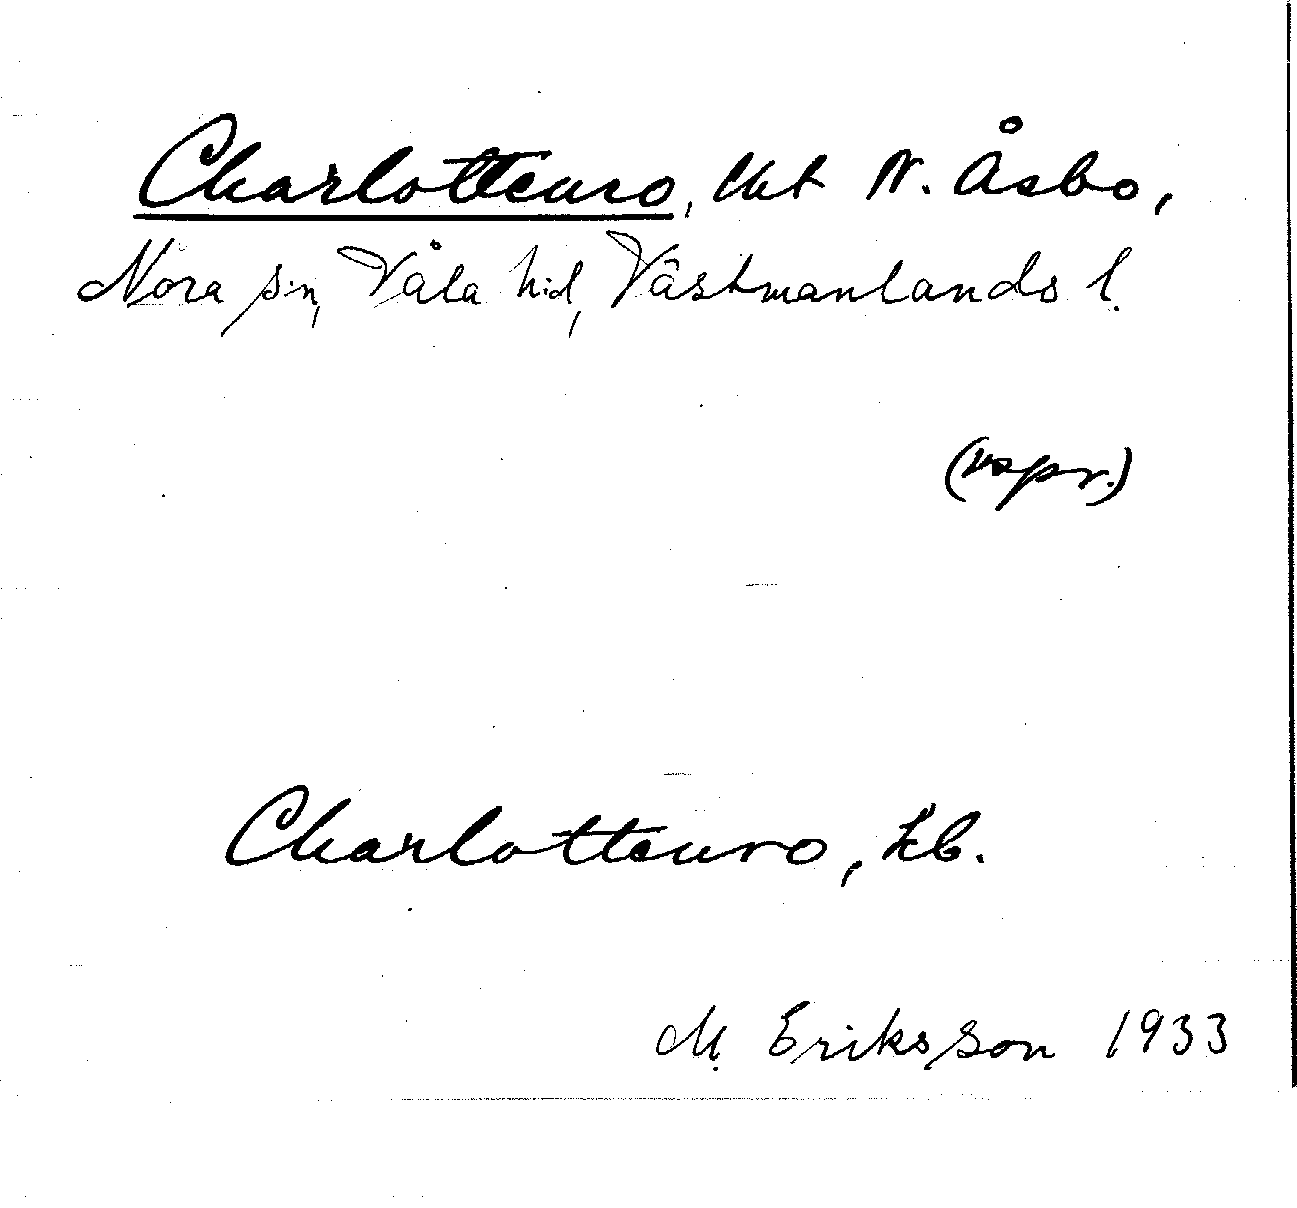 Charlottenro, lht N. Åsbo,
Nora sn, Våla hd, Västmanlands l.
(uspr.)
Charlottenro, kb.
M. Eriksson 1933